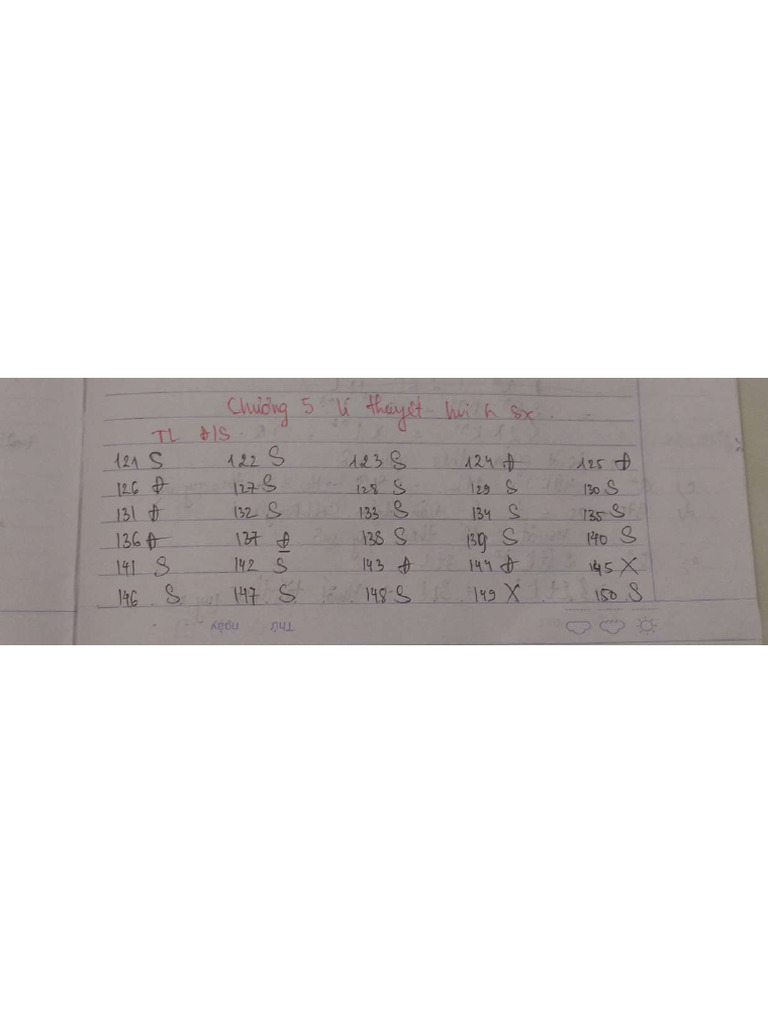 Chương 5 lí thuyết hvi h sx
TL Đ/S
121 S 122 S 123 S 124 Đ 125 Đ
126 Đ 127 S 128 S 129 S 130 S
131 Đ 132 S 133 S 134 S 135 S
136 Đ 137 Đ 138 S 139 S 140 S
141 S 142 S 143 Đ 144 Đ 145 X
146 S 147 S 148 S 149 X 150 S
Thứ ngày